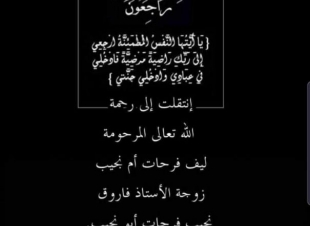 رَاجِعُونَ
{ يَا أَيَّتُهَا النَّفْسُ الْمُطْمَئِنَّةُ ارْجِعِي
إِلَىٰ رَبِّكِ رَاضِيَةً مَرْضِيَّةً فَادْخُلِي
فِي عِبَادِي وَادْخُلِي جَنَّتِي }
إنتقلت إلى رحمة
الله تعالى المرحومة
ليف فرحات أم نجيب
زوجة الأستاذ فاروق
نجيب فرحات أبو نجيب